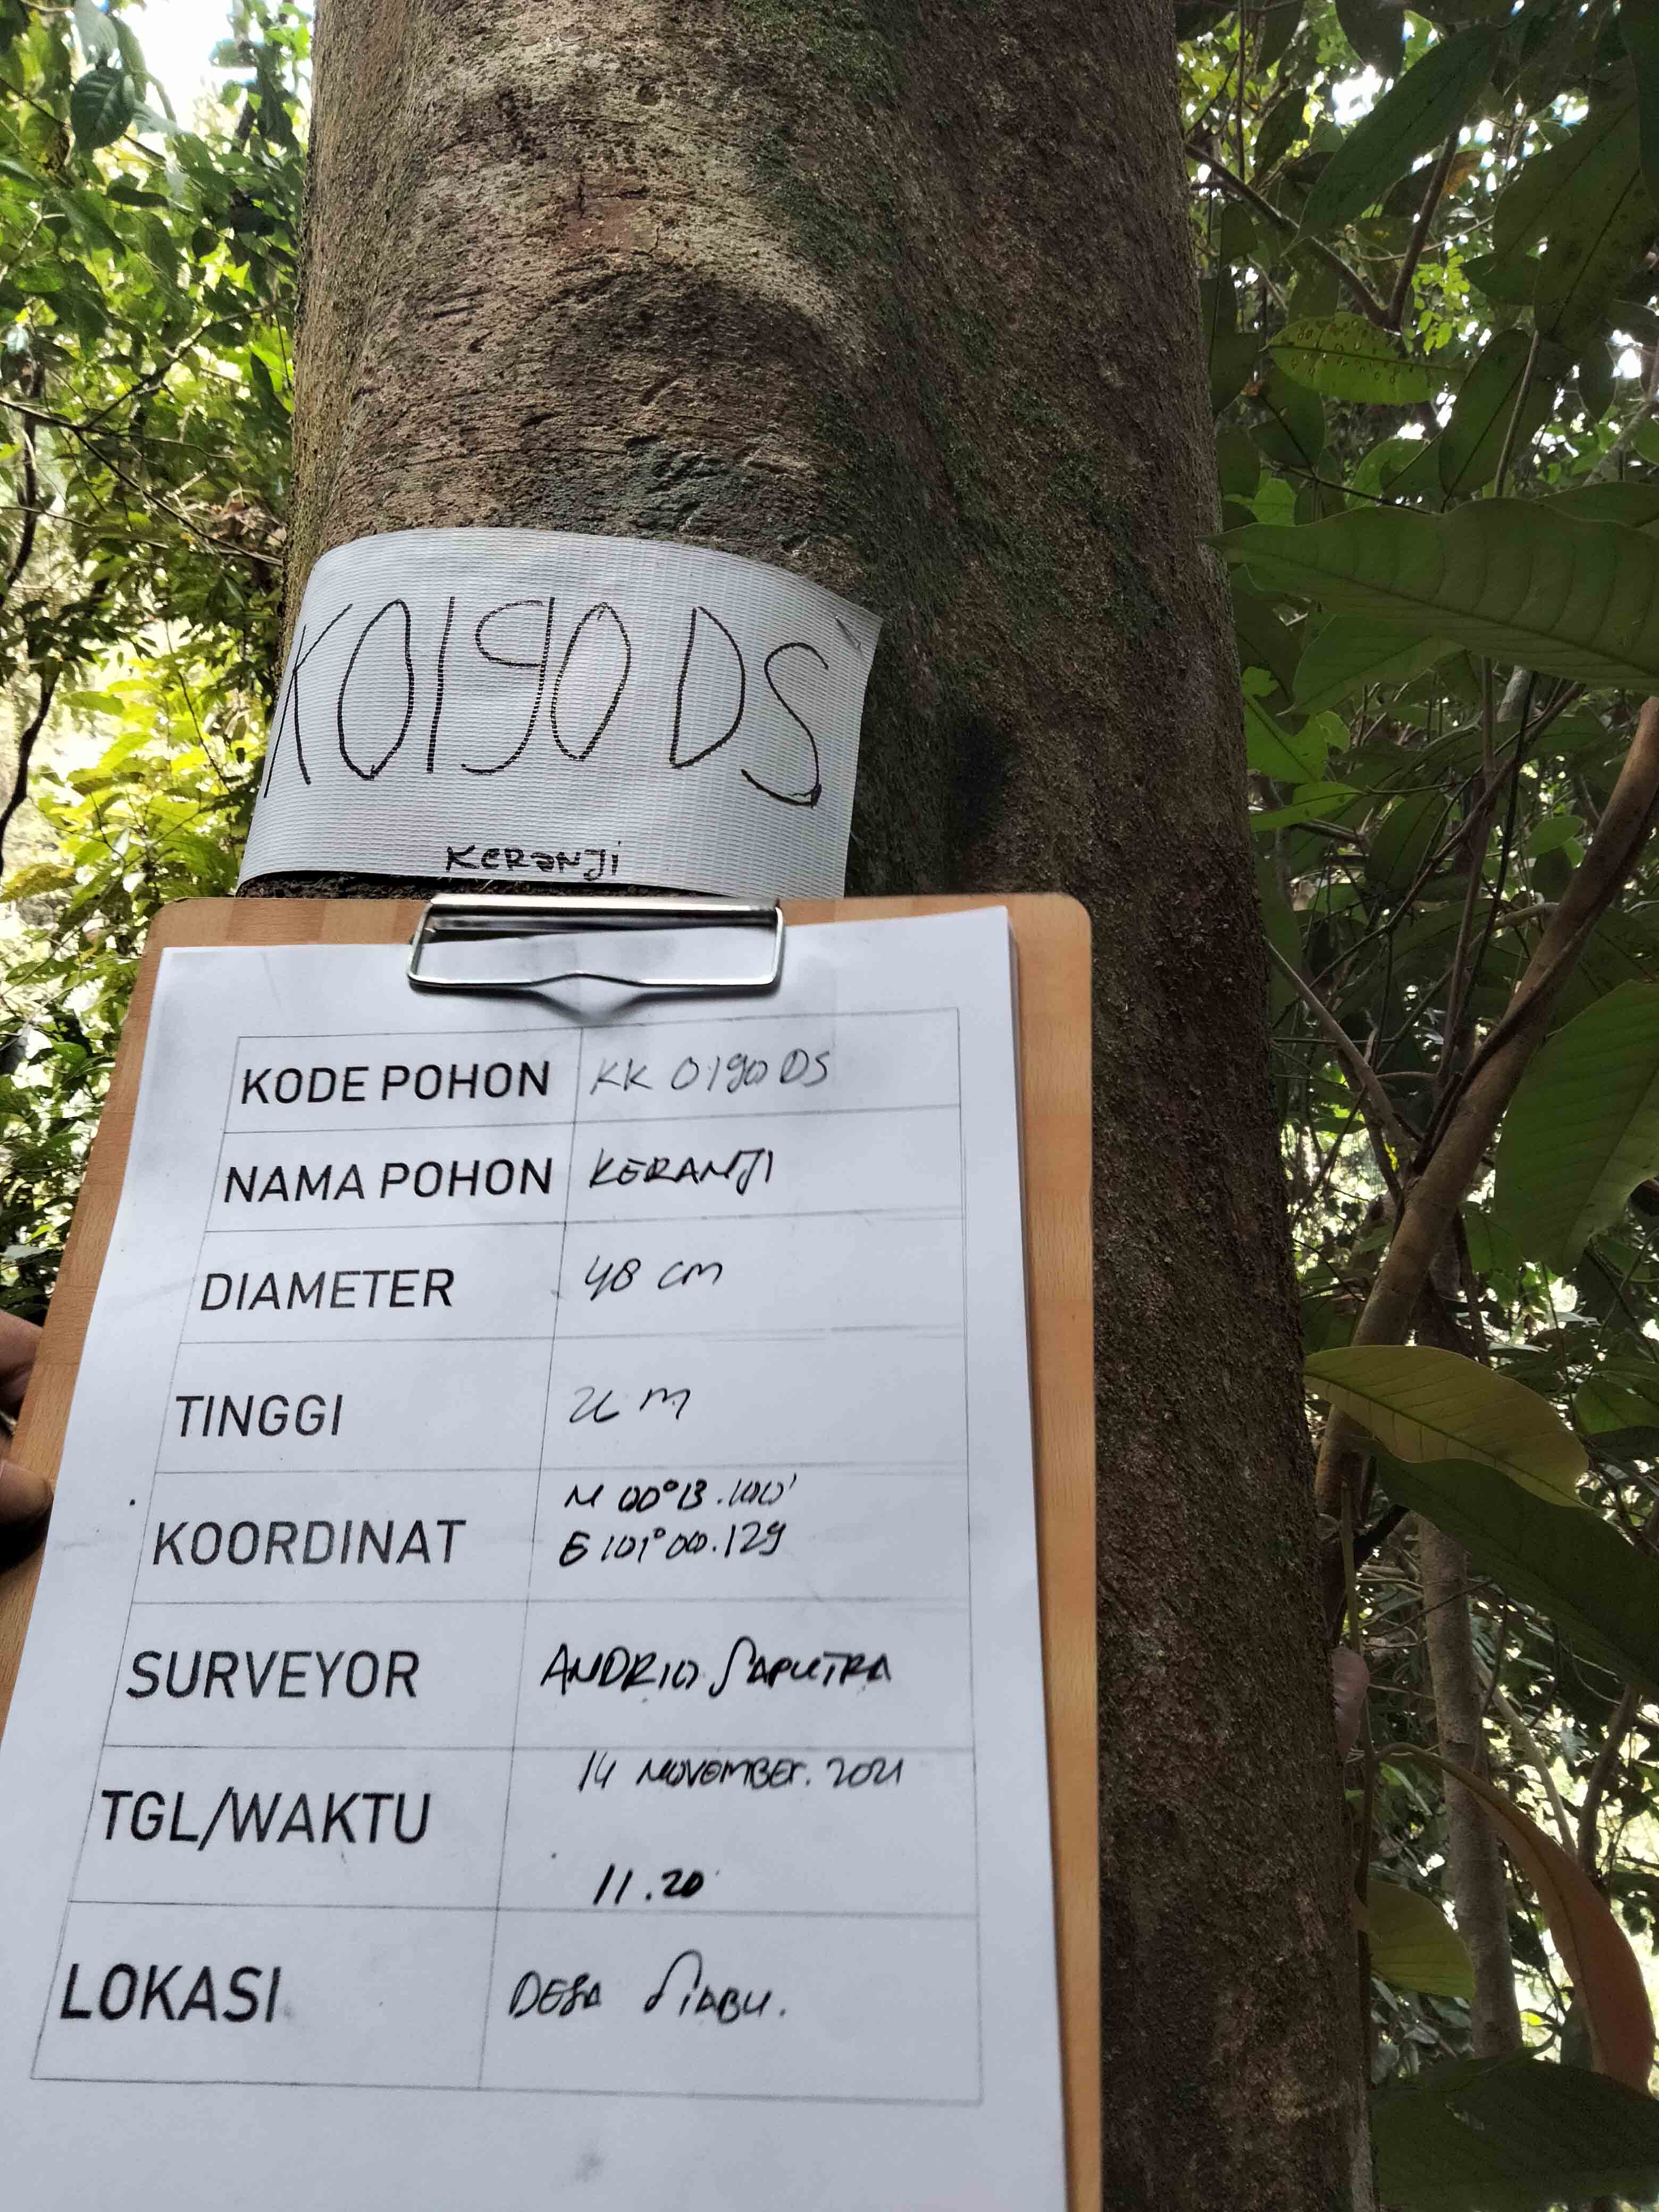 K0190 DS
KERANJI
KODE POHON KK 0190 DS
NAMA POHON KERANJI
DIAMETER 48 cm
TINGGI m
KOORDINAT N 00°13.100'
E 101°00.129
SURVEYOR ANDRIO SAPUTRA
TGL/WAKTU 14 NOVEMBER. 2021
11.20
LOKASI DESA SIABU.